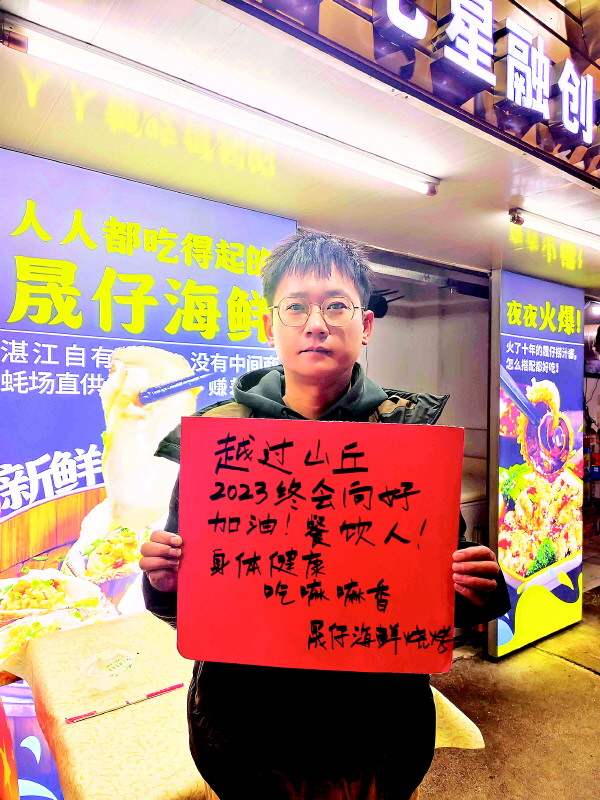 星融创
人人都吃得起的
晟仔海鲜
湛江自有
没有中间商
蚝场直供
赚
新鲜
夜夜火爆!
火了十年的晟仔捞汁酱,
怎么搭配都好吃!
越过山丘
2023终会向好
加油!餐饮人!
身体健康
吃嘛嘛香
晟仔海鲜烧烤